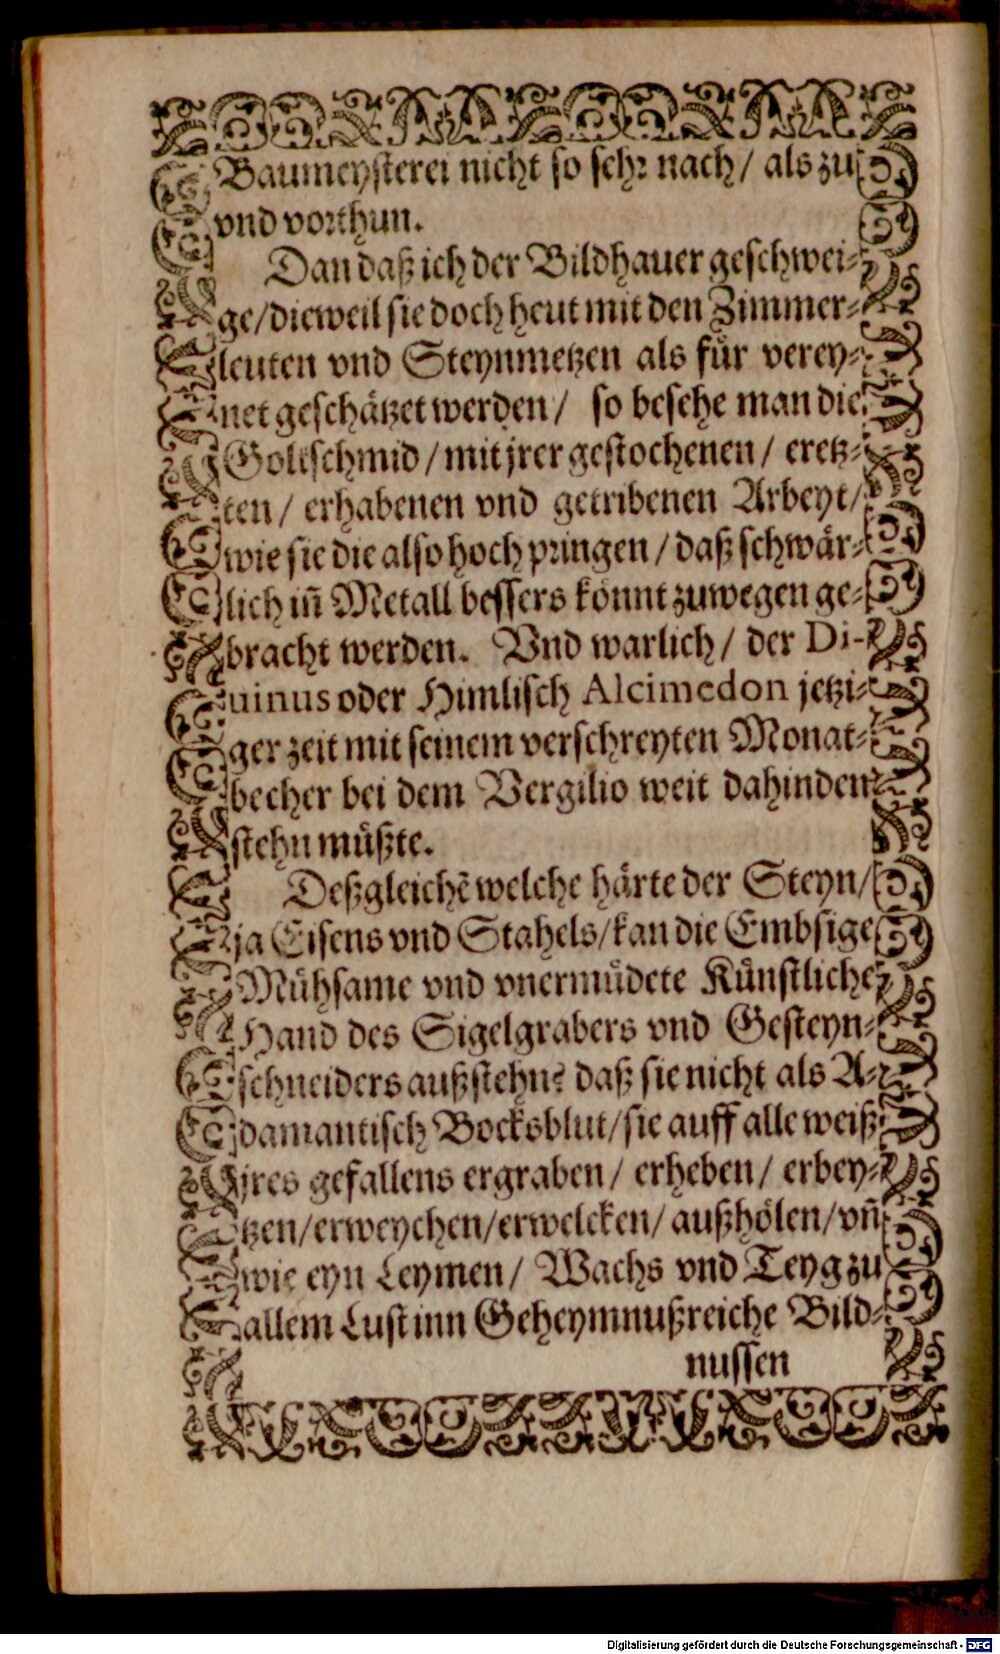 Baumeysterei nicht so sehr nach/ als zu
vnd vorthun.
Dan daß ich der Bildhauer geschwei-
ge/dieweil sie doch heut mit den Zimmer-
leuten vnd Steynmetzen als fuͤr verey-
net geschaͤtzet werden/ so besehe man die
Goltschmid/mit jrer gestochenen/ eretz-
ten/ erhabenen vnd getribenen Arbeyt/
wie sie die also hoch pringen/daß schwaͤr-
lich iñ Metall bessers koͤnnt zuwegen ge-
bracht werden. Vnd warlich/ der Di-
uinus oder Himlisch Alcimedon jetzi-
ger zeit mit seinem verschreyten Monat-
becher bei dem Vergilio weit dahinden
stehn muͤßte.
Deßgleichẽ welche haͤrte der Steyn/
ja Eisens vnd Stahels/kan die Embsige
Muͤhsame vnd vnermuͤdete Kuͤnstliche
Hand des Sigelgrabers vnd Gesteyn-
schneiders außstehn? daß sie nicht als A-
damantisch Bocksblut/sie auff alle weiß
jres gefallens ergraben/ erheben/ erbey-
tzen/erweychen/erwelcken/ außhoͤlen/vñ
wie eyn Leymen/ Wachs vnd Teyg zu
allem Lust inn Geheymnußreiche Bild-
nussen
Digitalisierung gefördert durch die Deutsche Forschungsgemeinschaft - DFG